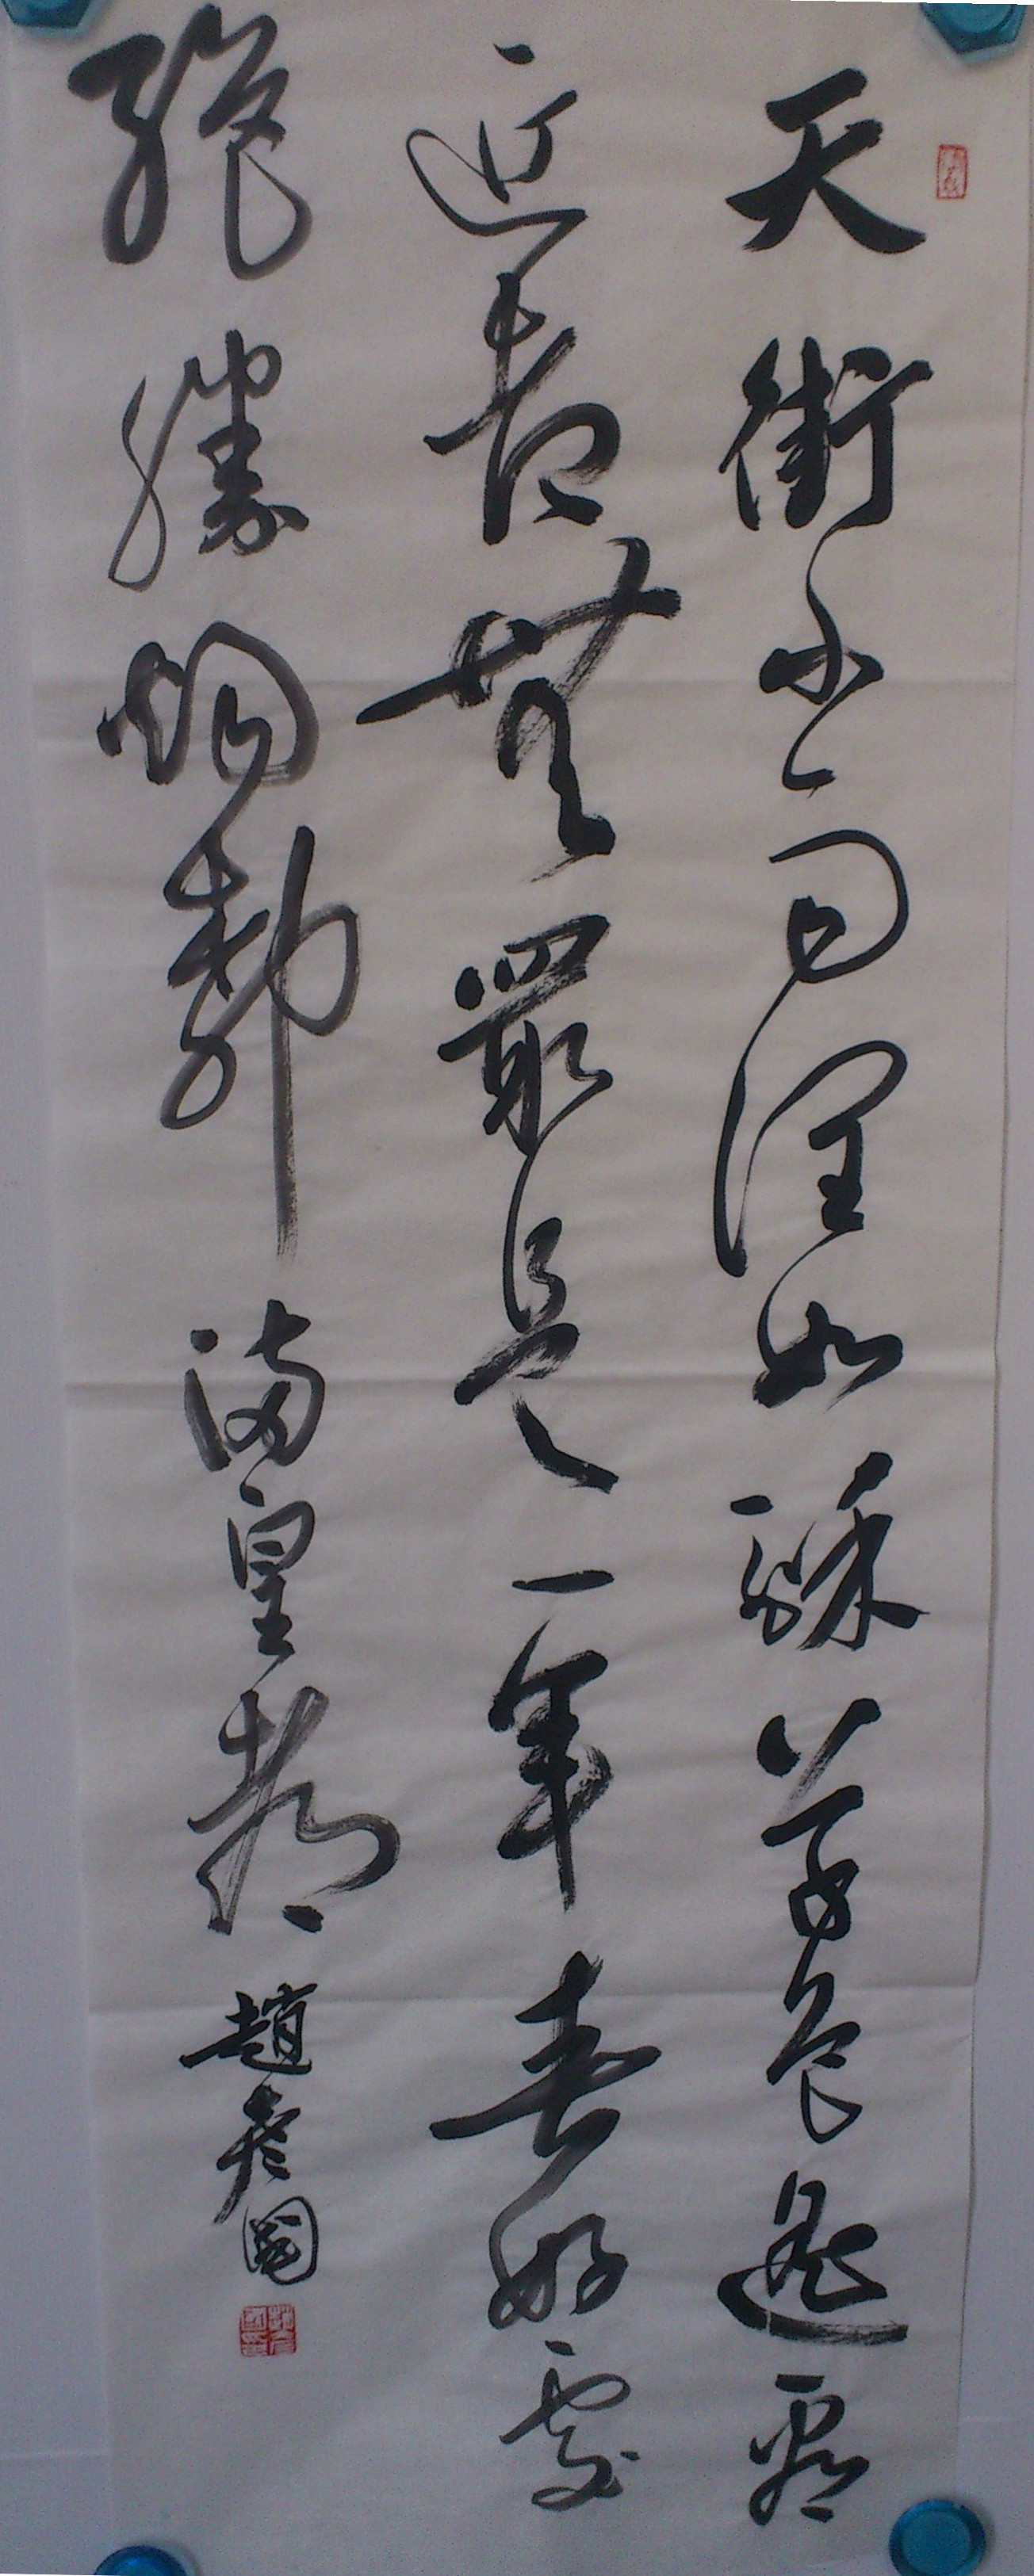 天街小雨潤如酥草色遙看
近卻無最是一年春好處
絕勝烟柳滿皇都 趙彥國